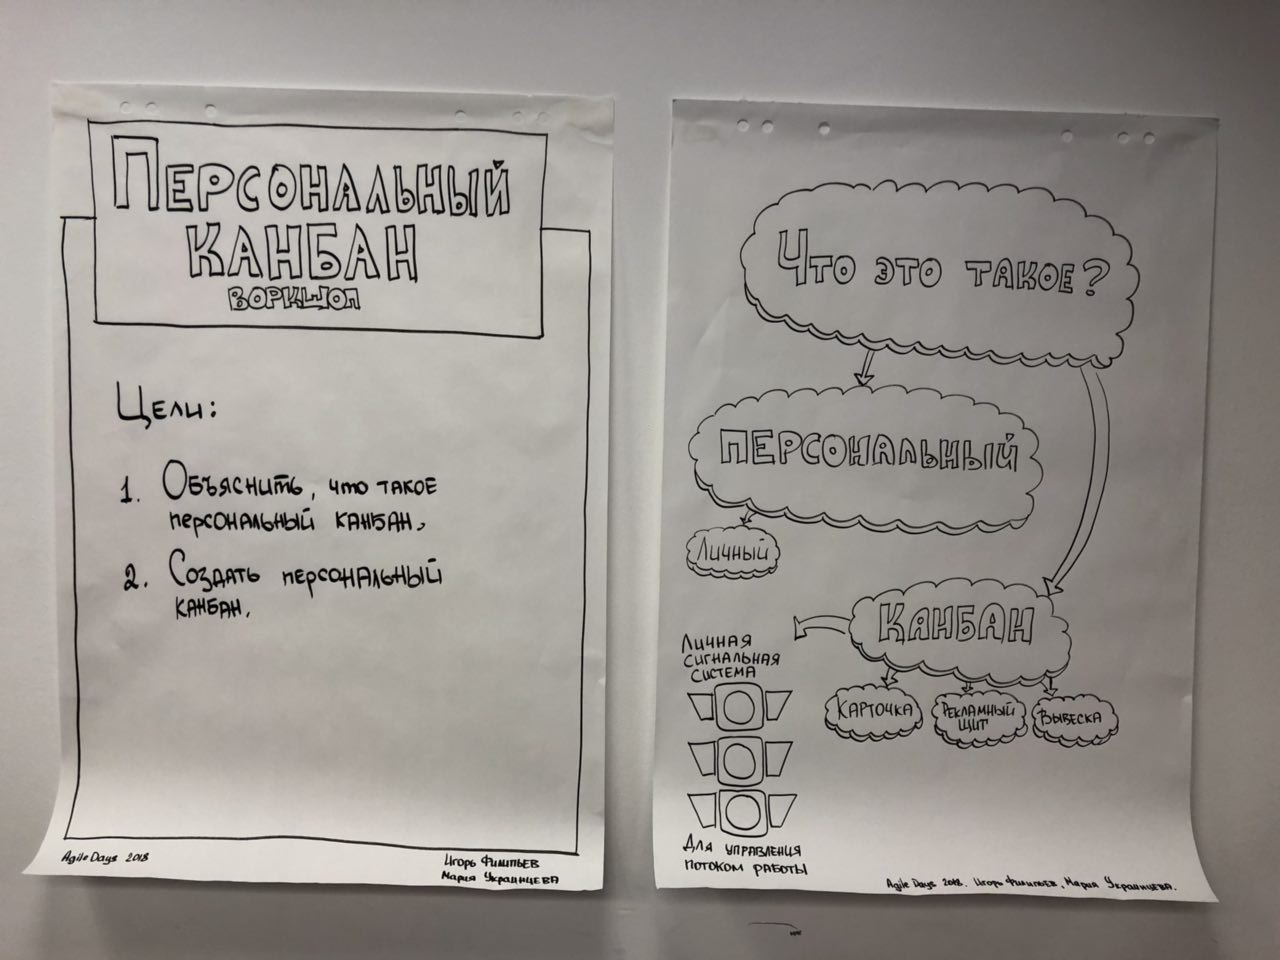 Персональный
канбан
воркшоп
Цели:
1. Объяснить, что такое
персональный канбан.
2. Создать персональный
канбан.
Agile Days 2018
Игорь Филипьев
Мария Украинцева
Что это такое?
Персональный
Личный
Канбан
Личная
сигнальная
система
Карточка
Рекламный
щит
Вывеска
Для управления
потоком работы
Agile Days 2018. Игорь Филипьев, Мария Украинцева.